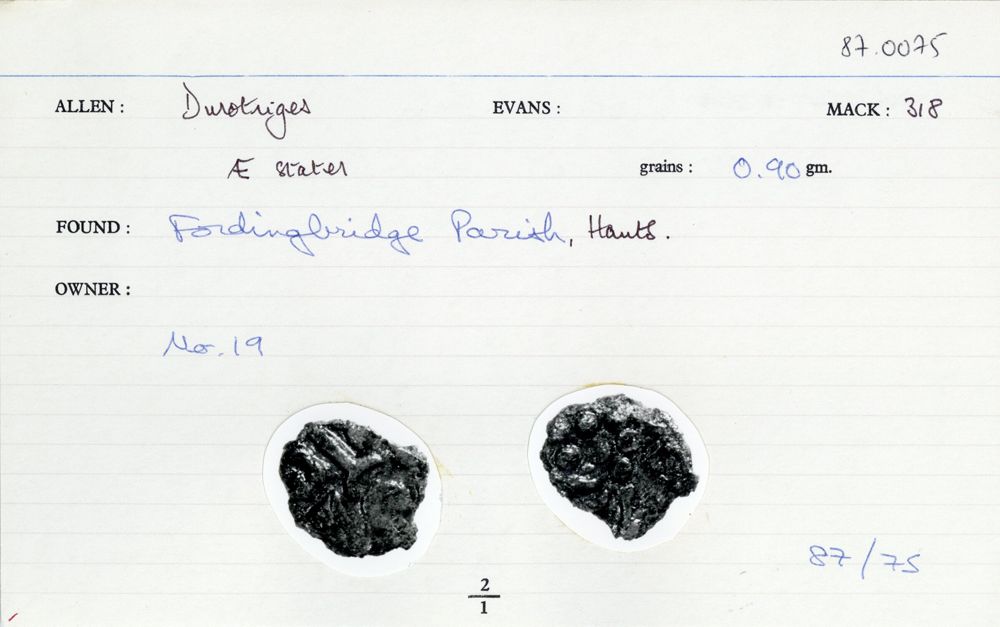 87.0075
ALLEN : Durotriges EVANS : MACK : 318
Æ stater grains : 0.90 gm.
FOUND : Fordingbridge Parish, Hants.
OWNER :
No. 19
87/75
2
1